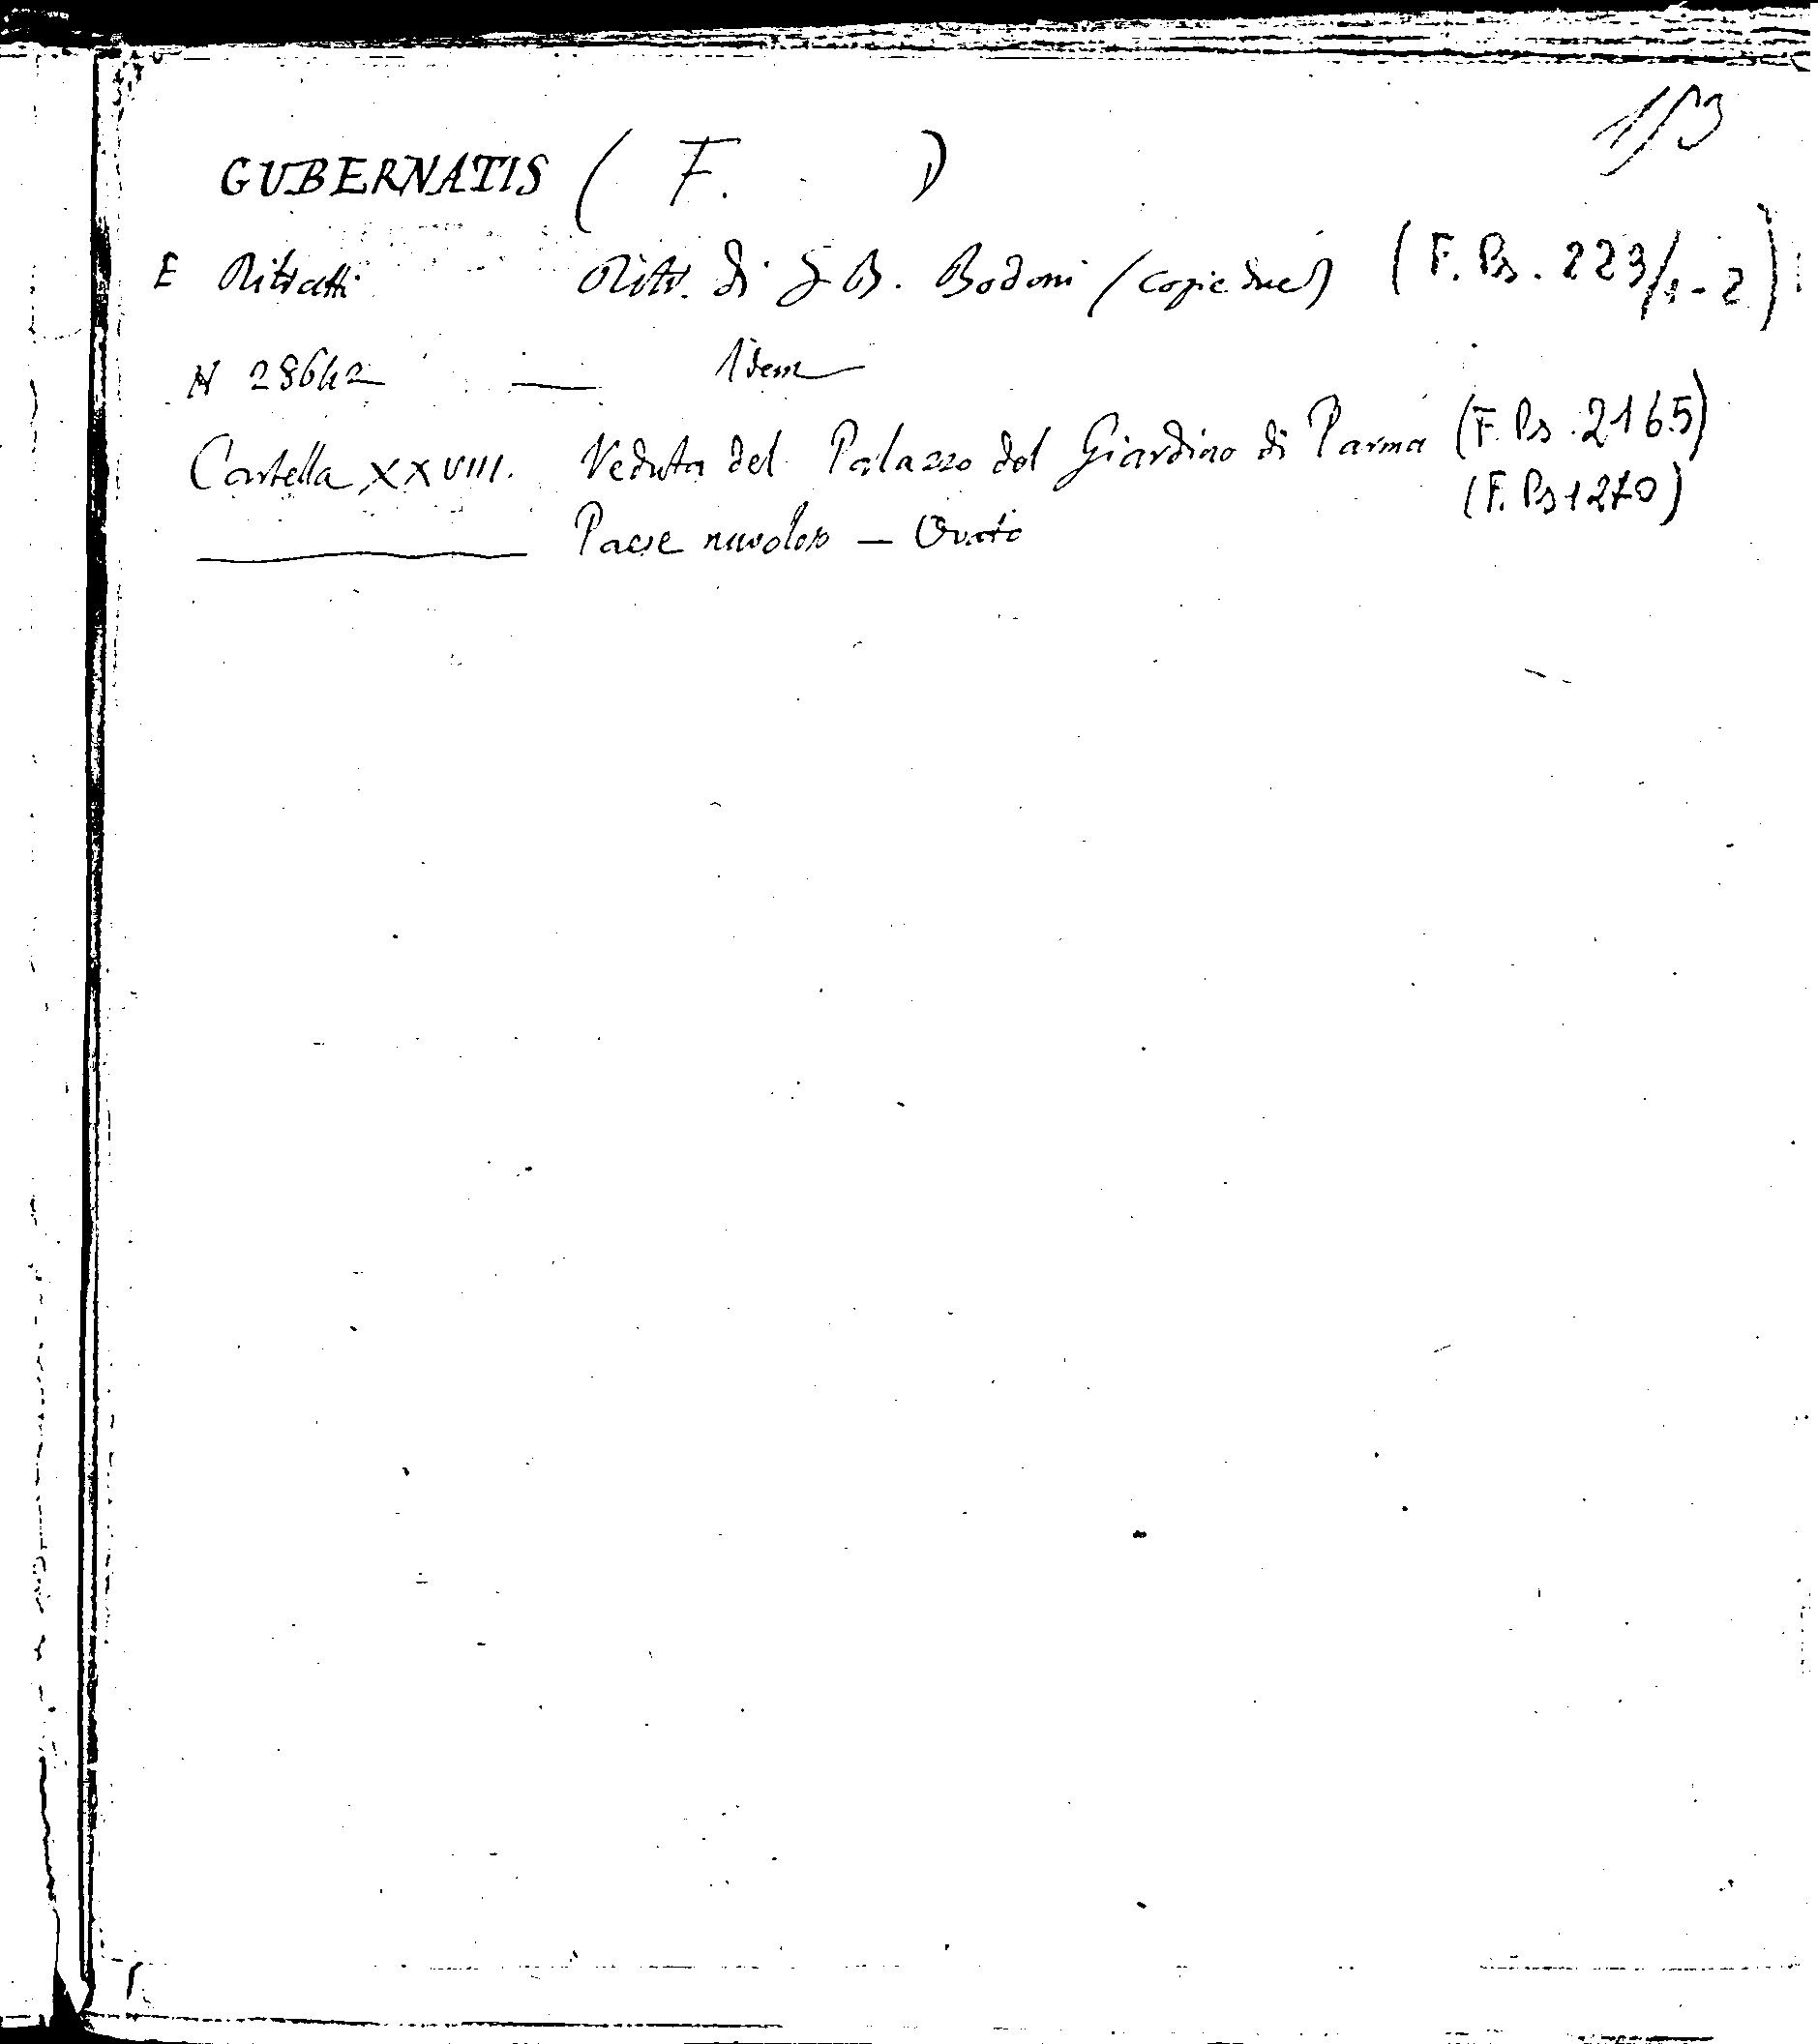 113
GUBERNATIS ( F. )
E Ritratti Ritr. di G B. Bodoni (copie due) (F. Ps. 223/1-2)
N 28642 — Idem
Cartella XXVIII. Veduta del Palazzo del Giardino di Parma (F. Ps. 2165)
(F. Ps 1270)
— Paese nuvoloso — Ovato